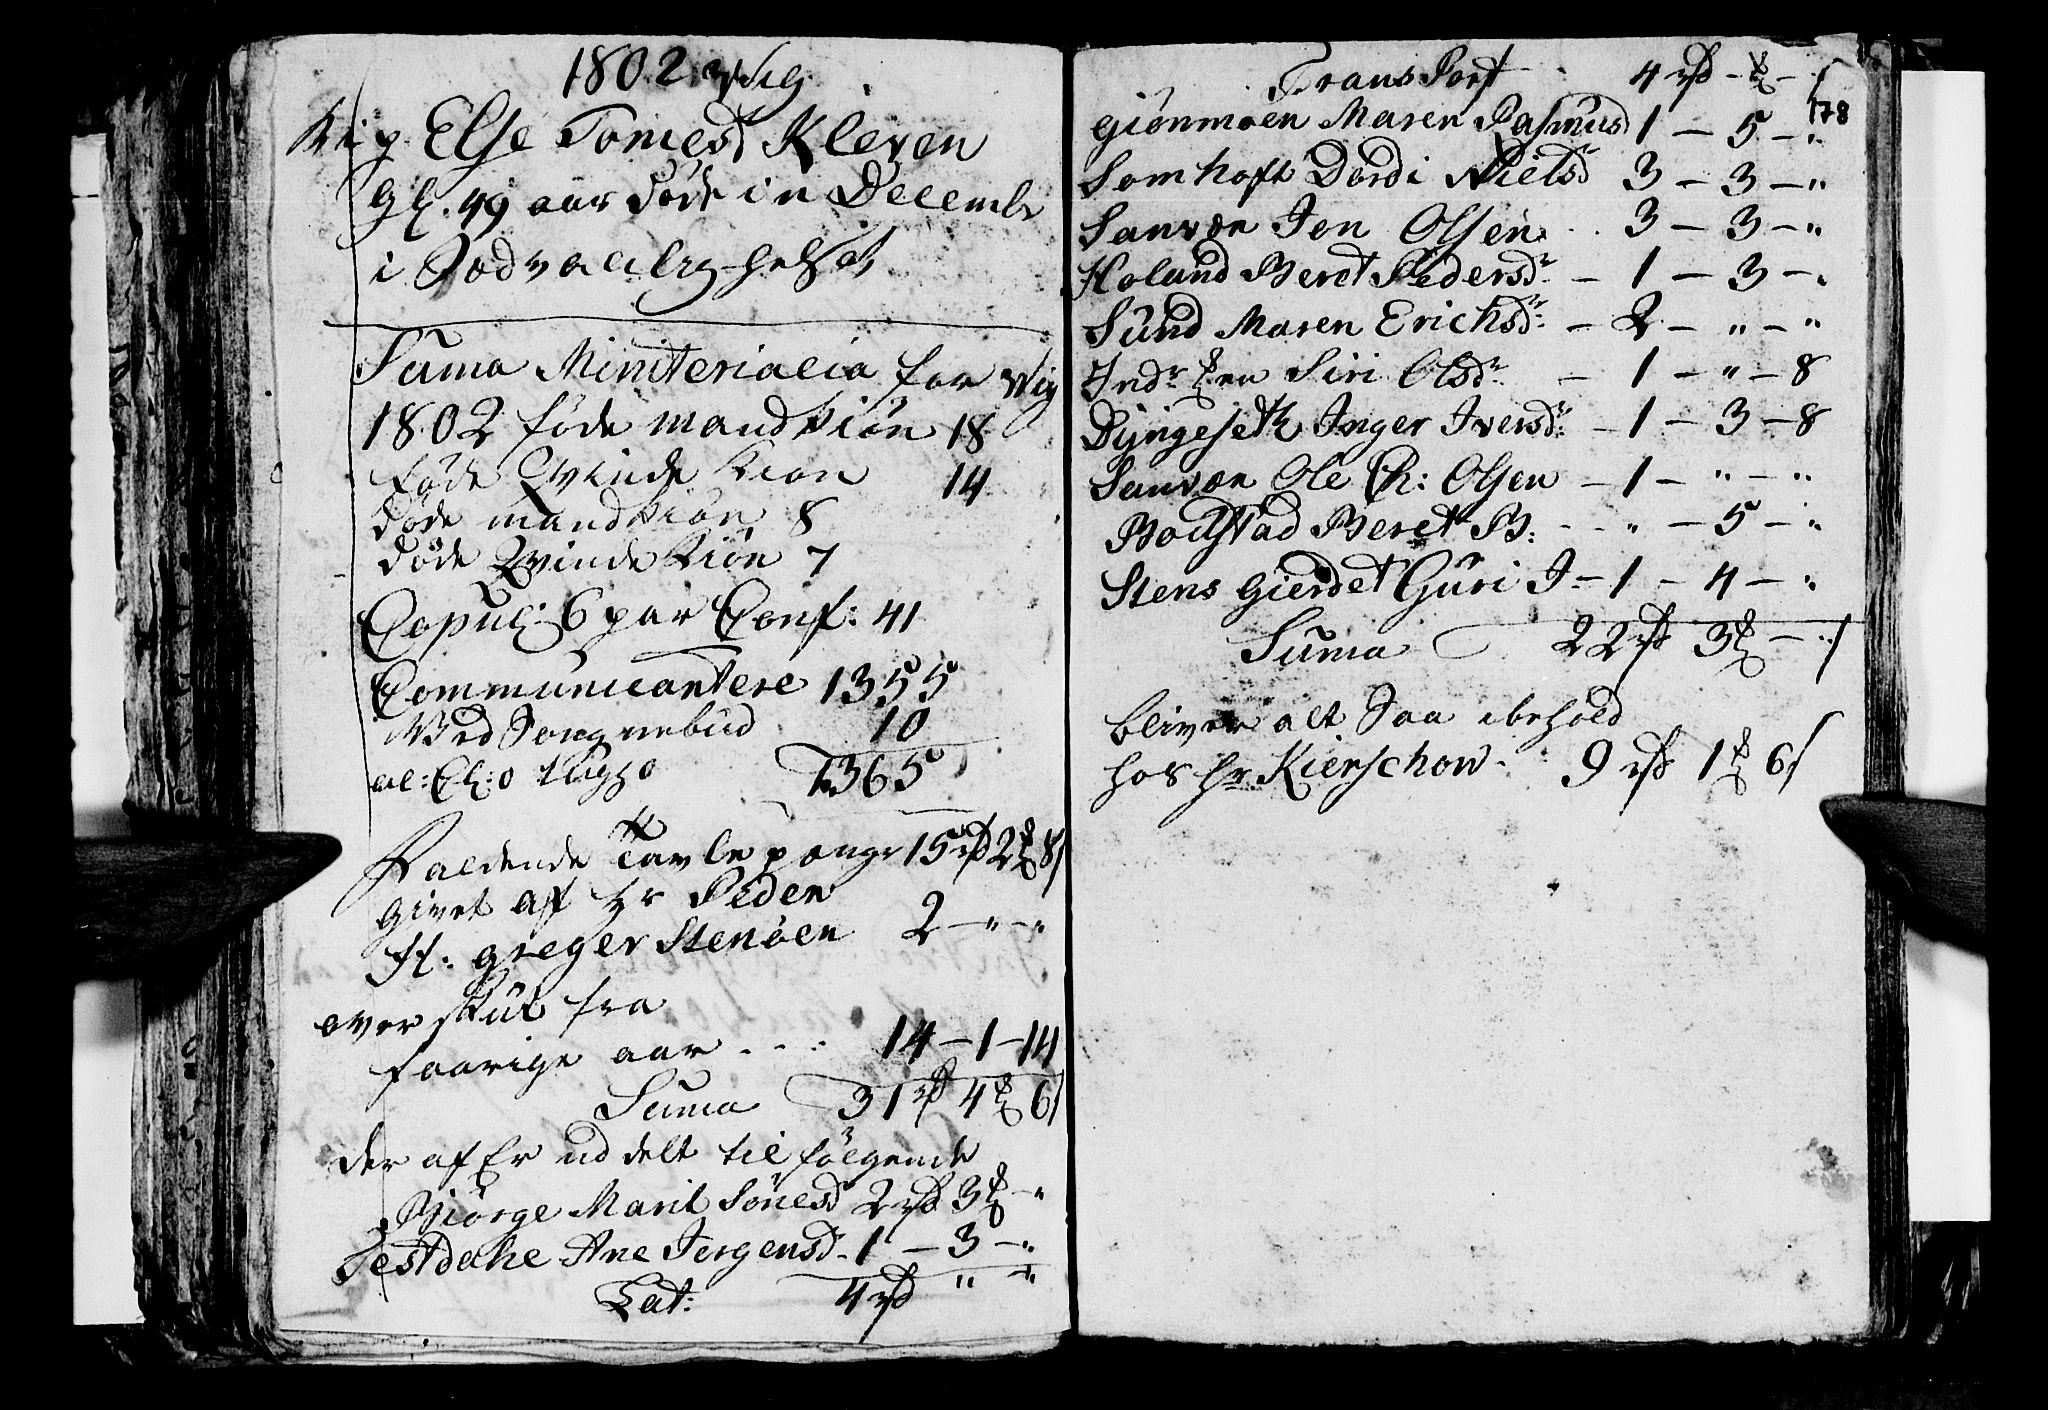 1802 Vig
Vig Else Tomesd Kleven
Gl. 49 aar døde in Decembr
i
Suma Miniterialia for Vig
1802 føde mandkiøn 18
føde Qvinde Kiøn 14
døde mandkiøn 8
døde Qvinde Kiøn 7
Copul: 6 par Conf: 41
Communicantere 1355
Ved Songnebud 10
1365
Faldende Tavle pænge 15 rd 2 ₰ 8 s
givet af Hr Peder
H. greger Stenøen 2 - " - "
over skud fra
forrige aar . . . 14 - 1 - 14
Suma 31 rd 4 ₰ 6 s
der af Er ud delt til følgende
Biørge Marit Sønesd 2 rd 3 ₰ - "
Testdahe Ane Jørgensd - 1 - 3 - "
Lat: 4 rd " - "
Trans Port 4 rd - ₰ - s
178
Giønmøen Maren Rasmusd 1 - 5 - "
Somhoft Dordi Nielsd 3 - 3 - "
Sanvæn Jon Olsen . . 3 - 3 - "
Holand Beret Pedersdr - 1 - 3 - "
Sund Maren Erichsdr: - 2 - " - "
Siri Olsdr - 1 - " - 8
Dyngeseth Inger Iversdr: - 1 - 3 - 8
Sanvæn Ole Ch: Olsen - 1 - " - "
Bolstad Beret B: - - " - 5 - "
Stens gierdet Guri J - 1 - 4 - "
Suma 22 rd 3 ₰ - " s
bliver alt Saa i behold
hos hr Kierschow - 9 rd 1 ₰ 6 s